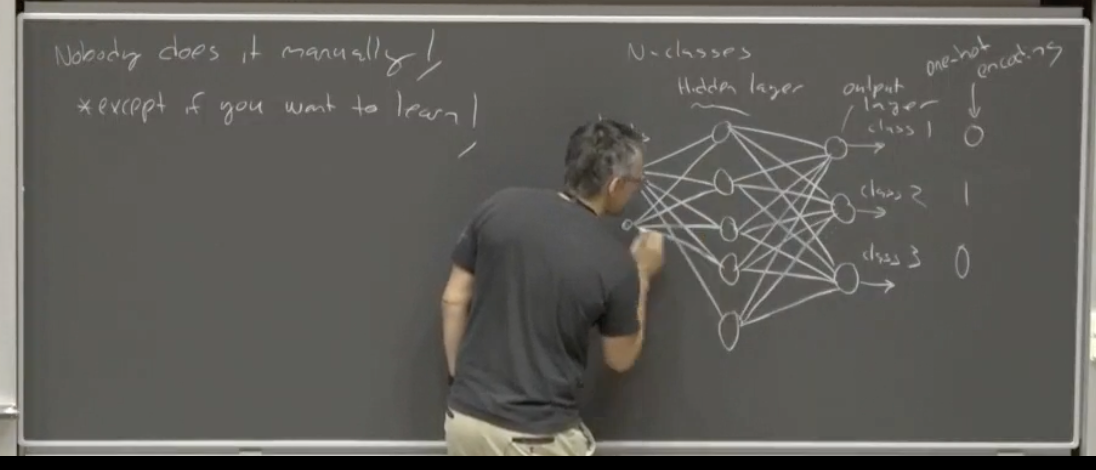 Nobody does it manually!
*except if you want to learn!
N-classes
Hidden layer
output
layer
one-hot
encoding
class 1 0
class 2 1
class 3 0